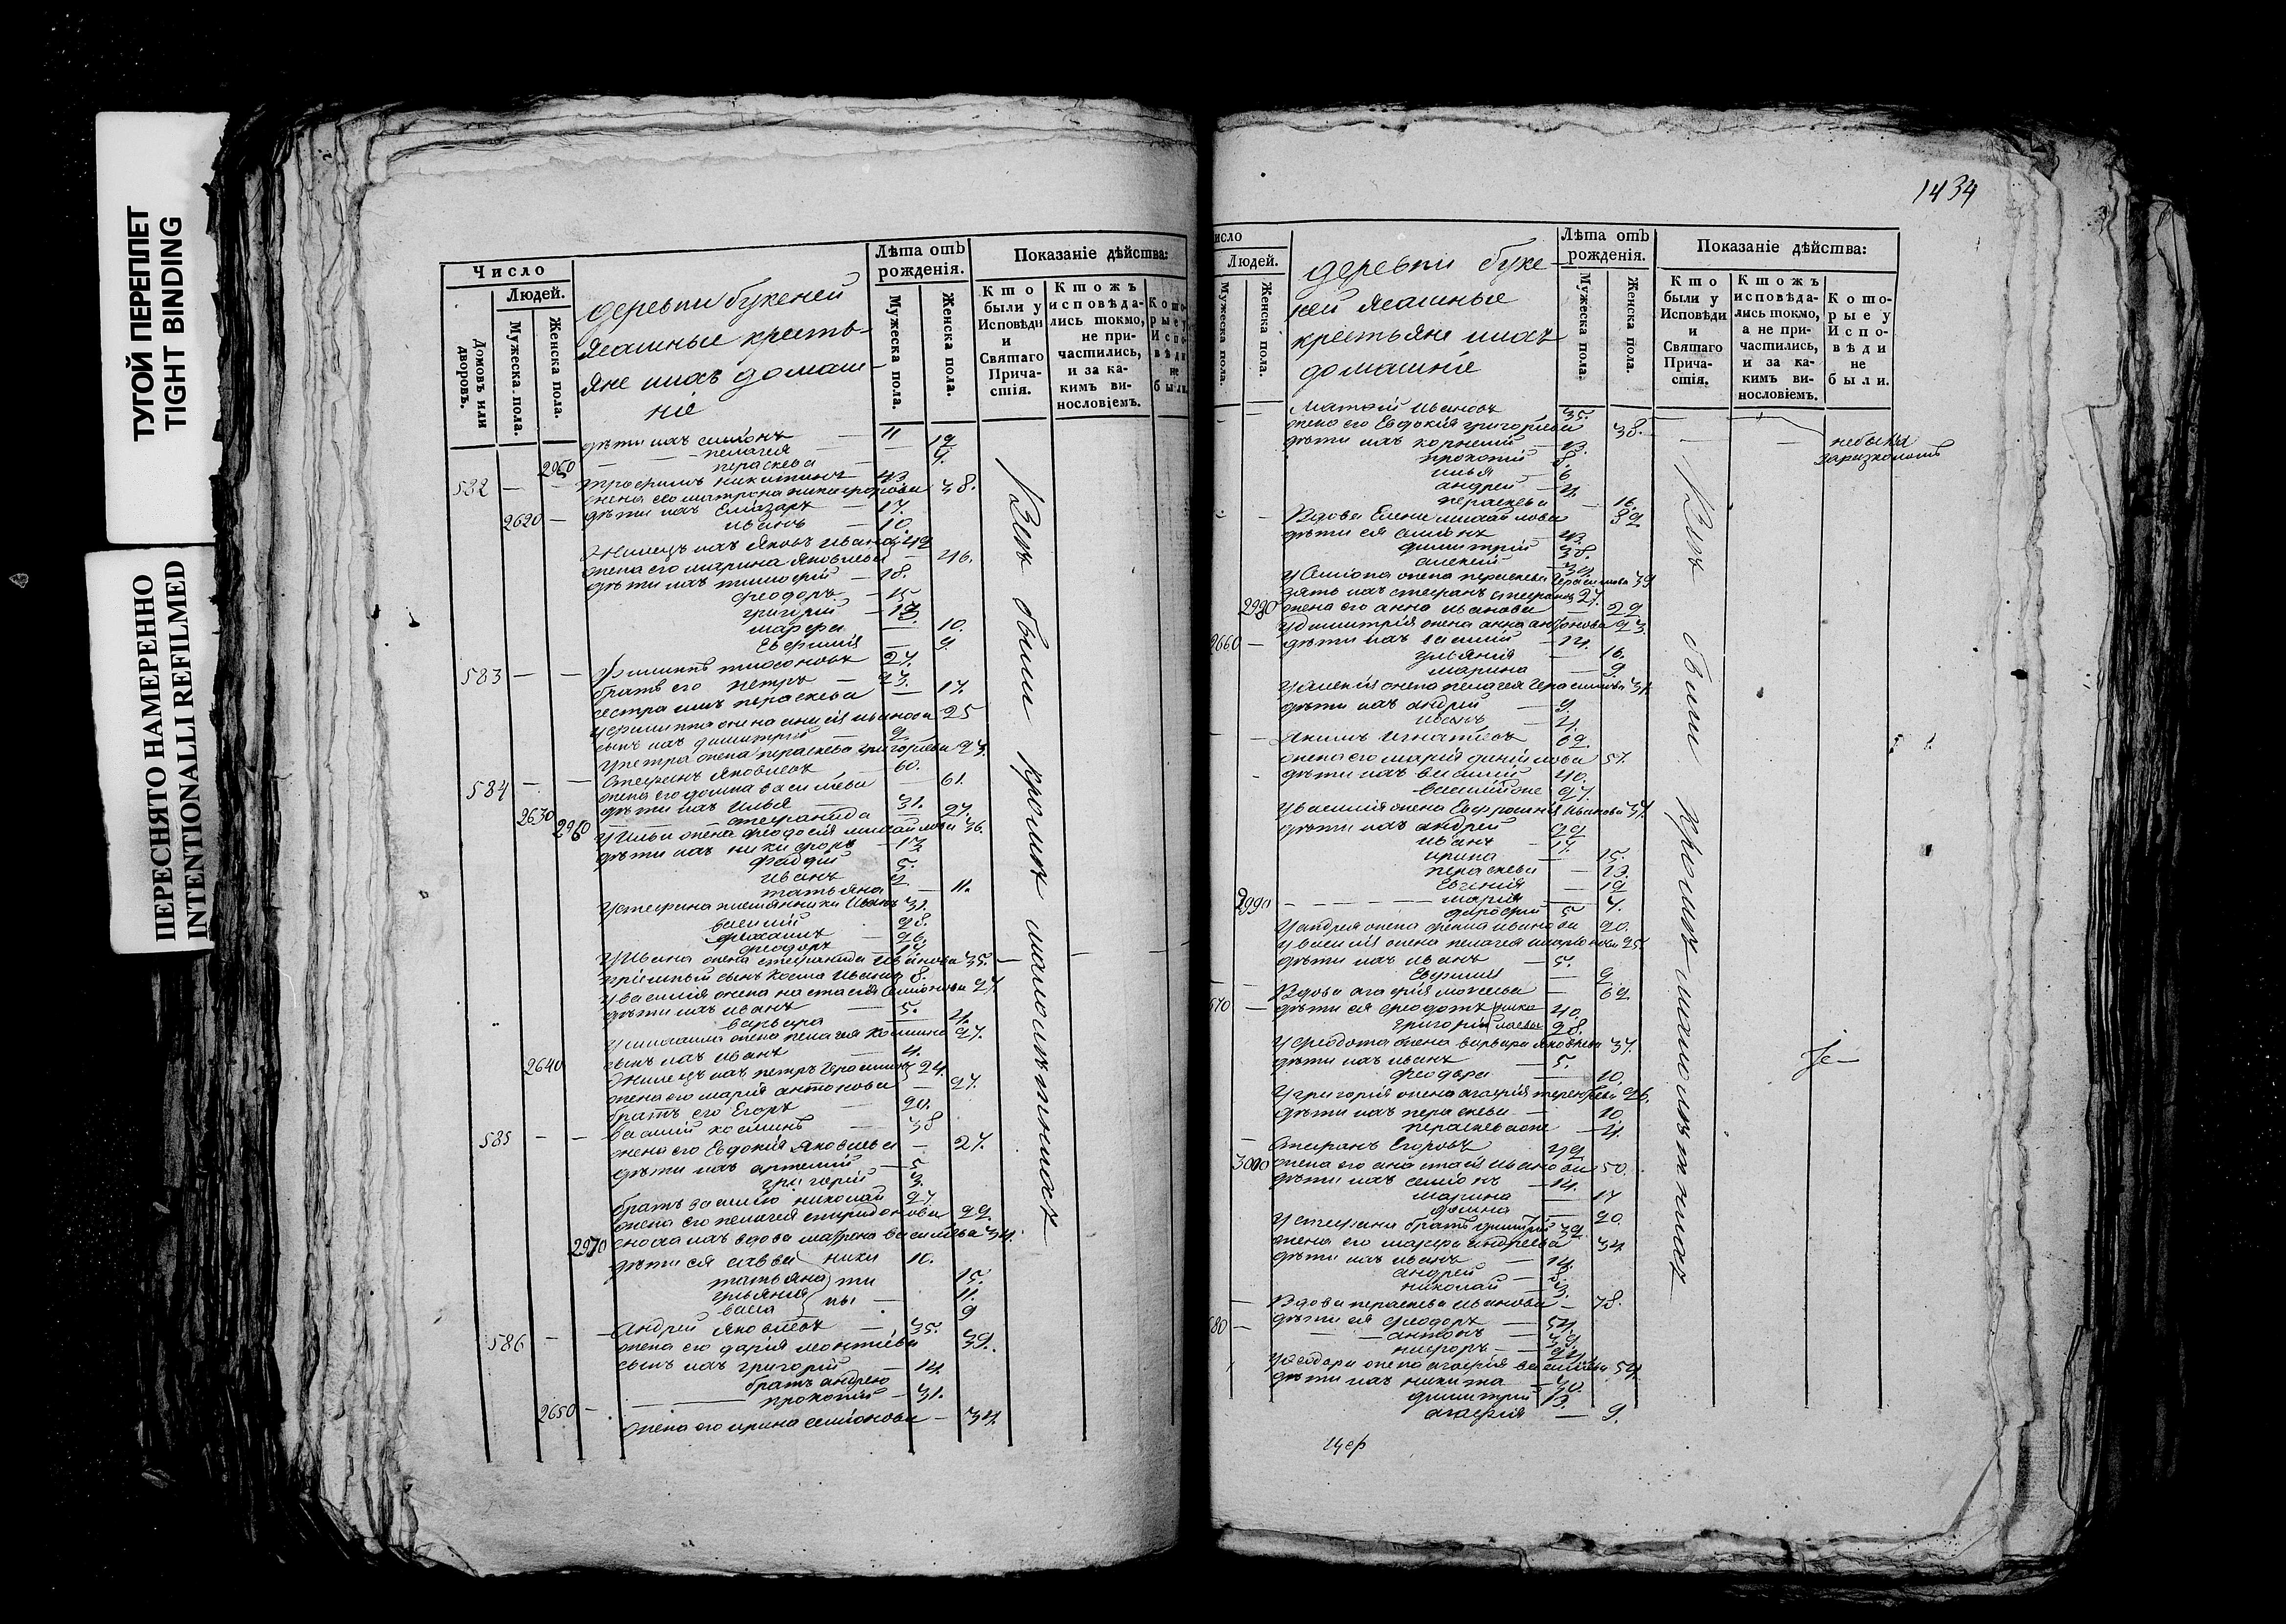 ТУГОЙ ПЕРЕПЛЕТ
TIGHT BINDING
ПЕРЕСНЯТО НАМЕРЕННО
INTENTIONALLI REFILMED
Число
Людей.
Домовъ или дворовъ.
Мужеска пола.
Женска пола.
деревни букеней
ясашные кресть-
яне ихъ домаш-
ніе
Лѣта отъ рожденія.
Мужеска пола.
Женска пола.
Показаніе дѣйства:
Кто были у Исповѣди и Святаго Прича-стія.
Ктожъ исповѣда-лись токмо, не при-частились, и за ка-кимъ ви-нословіемъ.
Кото-рые у Испо-вѣди не были.
дѣти ихъ симіонъ — 11
пелагея — 12
2950 параскева — 9.
582 — — трофимъ никитинъ 43
жена его матрона никифорова 38.
2620 — дѣти ихъ Елиазаръ — 17.
иванъ — 10.
жилецъ ихъ Яковъ Ивановъ 49
жена его марина Яковлева — 46.
дѣти ихъ тимофей — 18.
феодоръ — 15
григорій — 13.
марфа — 10.
Евфимія — 9
583 — — Филиппъ 27.
братъ его петръ — 23.
сестра ихъ параскева — 17.
у филиппа жена анисія иванова 25
сынъ ихъ димитрій — 2
у петра жена параскева григорьева 23.
584 — — Стефанъ Яковлевъ 60.
жена его домна васильева — 61.
2630 дѣти ихъ Илья — 31.
2960 стефанида — 27.
у Ильи жена феодосія михайлова 36.
дѣти ихъ никифоръ — 13
фаддей 5.
иванъ 2
татьяна — 11.
у стефана племянники Иванъ 31.
василій 28.
феодоръ
у Ивана жена стефанида Иванова 35.
пріемный сынъ Косма Ивановъ 8.
у василія жена настасія Симіонова 27.
дѣти ихъ иванъ — 5.
варвара — 4.
жена пелагея Космина 27.
2640 сынъ ихъ иванъ — 4.
жилецъ ихъ петръ Герасимовъ 24.
жена его марія антонова — 27.
братъ его Егоръ 20.
585 — — василій косминъ 38
жена его Евдокія Яковлева — 27.
дѣти ихъ артемій — 5
григорій 3.
братъ василію николай 27.
жена его пелагея спиридонова 22.
2970 сноха ихъ вдова матрона васильева 34.
дѣти ея савва ники 10.
татьяна ти 15.
ульянія ны — 11.
васса 9
586 — — Андрей Яковлевъ — 35.
жена его дарія леонтіева 39.
сынъ ихъ григорій — 14.
братъ андрею
2650 — прокопій — 31.
жена его ирина симіонова — 34.
Всѣ были кромѣ малолѣтнихъ
1434
исло
Людей.
Мужеска пола.
Женска пола.
деревни буке-
ней ясашные
крестьяне ихъ
домашніе
Лѣта отъ рожденія.
Мужеска пола.
Женска пола.
Показаніе дѣйства:
Кто были у Исповѣди и Святаго Прича-стія.
Ктожъ исповѣда-лись токмо, а не при-частились, и за ка-кимъ ви-нословіемъ.
Кото-рые у Испо-вѣди не были.
Матвей ивановъ 35.
жена его Евдокія григорьева 38.
небыла
дѣти ихъ корнилій — 13.
прокопій 8.
илья 6
андрей — 4.
параскева — 16.
Вдова Елена михайлова 59
дѣти ея симіонъ — 43.
димитрій 38.
алексій 34
у Симіона жена параскева Герасимова 39
зять ихъ стефанъ стефановъ 27.
2980 жена его анна иванова — 22
у димитрія жена анна антонова 43.
2660 — дѣти ихъ василій — 14.
ульянія — 16.
марина — 9.
у Алексія жена пелагея Герасимова 37.
дѣти ихъ андрей 9.
иванъ — 4.
Акимъ игнатіевъ 62.
жена его марія данілова 57.
дѣти ихъ василій 40.
василійже 27.
у василія жена Евфросинія Иванова 37.
дѣти ихъ андрей 22
иванъ 17.
ирина — 15.
параскева — 13.
Евгенія — 12
2990 — марія — 7.
дорофей 5
у андрея жена ирина иванова 20.
у василія жена пелагея иларіонова 25.
дѣти ихъ иванъ — 5.
Евфимія — 2
Вдова агафія моисеева — 62
670 — дѣти ея феодотъ 40.
григорій 28.
у феодота жена варвара Яковлева 37.
дѣти ихъ иванъ 5.
феодора 10.
у григорія жена агафія терентьева 26.
дѣти ихъ параскева — 10
параскеваже — 4.
Стефанъ Егоровъ 49
3000 жена его анастасія иванова 50.
дѣти ихъ симіонъ — 14.
марина — 17
домна — 20.
у стефана братъ димитрій 39.
жена его марфа андреева 34
дѣти ихъ иванъ — 14
андрей — 8.
николай — 3.
Вдова параскева иванова — 78.
680 — дѣти ея феодоръ — 54.
антонъ — 39
у феодора жена агафія васильева 54
дѣти ихъ никита — 30.
димитрій 13.
агафія — 9.
Всѣ были кромѣ малолѣтнихъ
цер